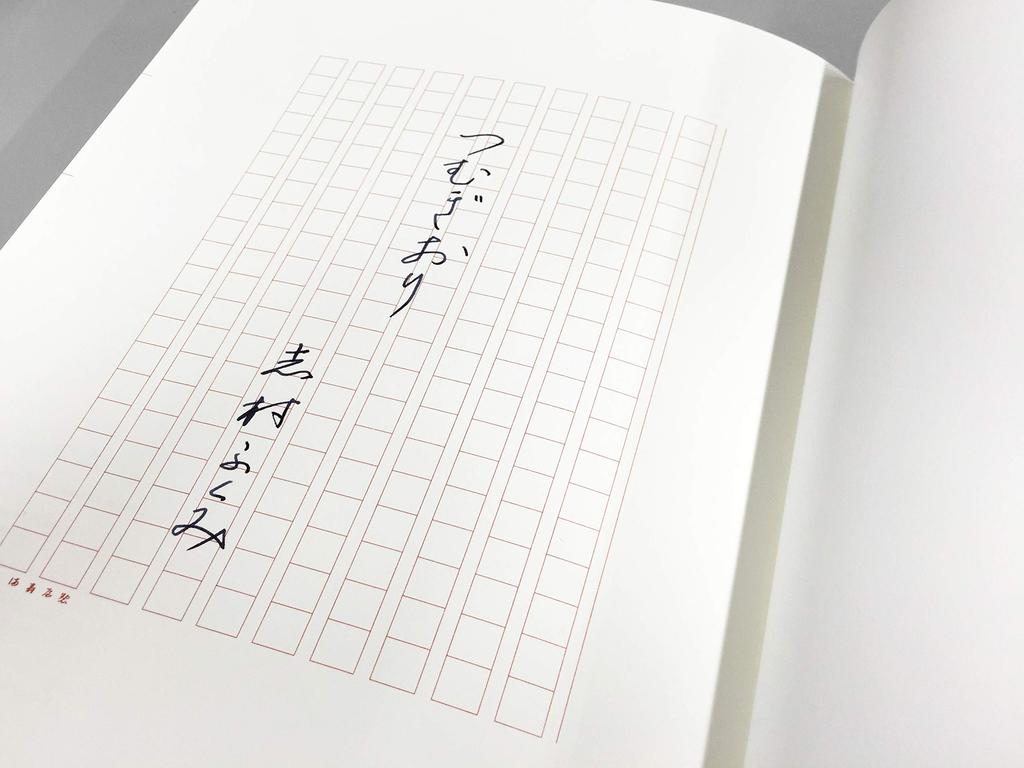 つむぎおり
志村ふくみ